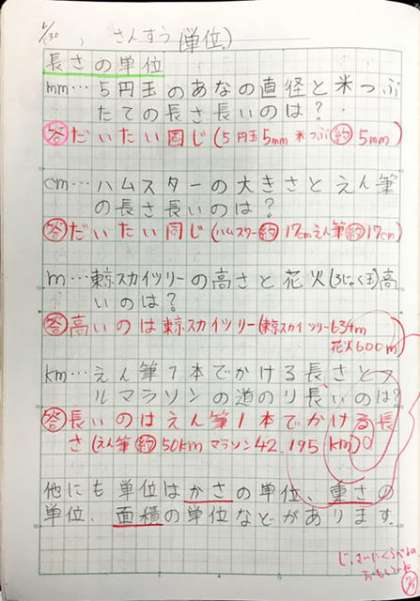 6/30 、さんすう(単位)
長さの単位
mm…5円玉のあなの直径と米つぶ
たての長さ長いのは?
答だいたい同じ(5円玉5mm 米つぶ約5mm)
cm…ハムスターの大きさとえん筆
の長さ長いのは?
答だいたい同じ(ハムスター約17cmえん筆約17cm)
m…東京スカイツリーの高さと花火(3じゃく玉)高
いのは?
答高いのは東京スカイツリー(東京スカイツリー634m
花火600m)
km…えん筆1本でかける長さとフ
ルマラソンの道のり長いのは?
答長いのはえん筆1本でかける長
さ(えん筆約50kmマラソン42.195km)
他にも単位はかさの単位、重さの
単位、面積の単位などがあります。